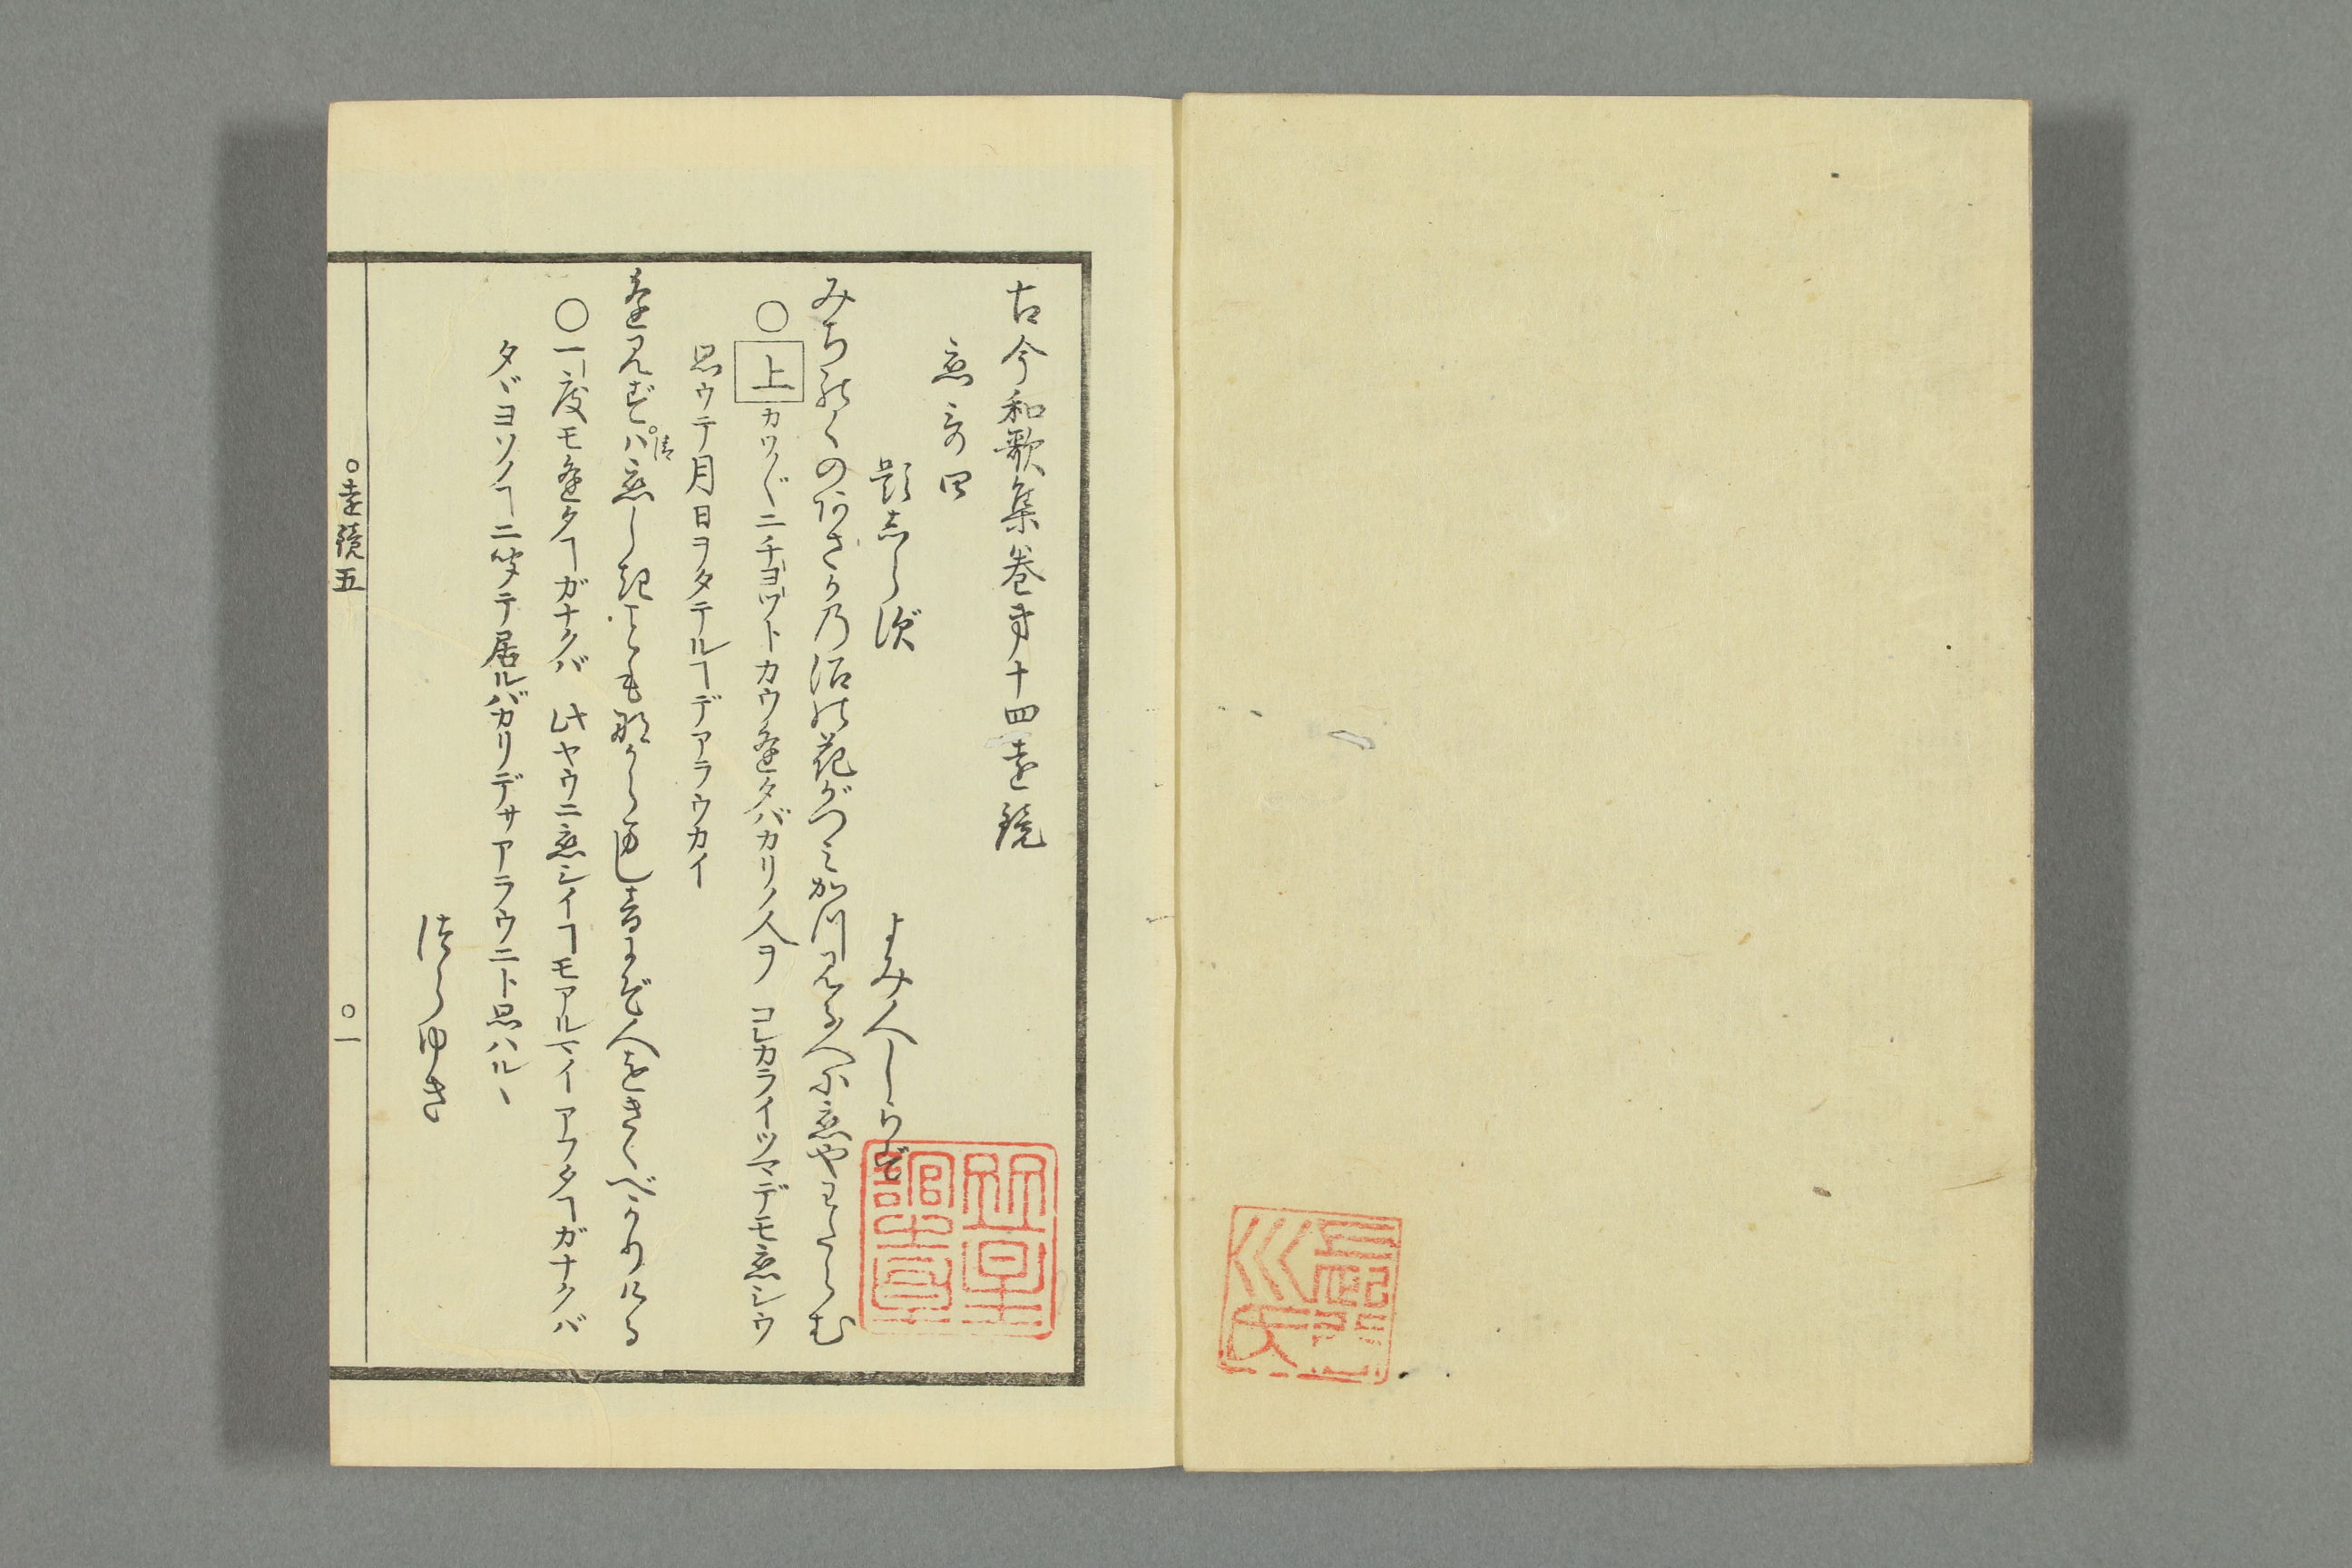 古今和歌集巻第十四遠鏡
恋哥四
題しらず
よみ人しらず
みちのくのあさかの沼の花がつみかつ見る人に恋やわたらむ
○上カリソメニチヨツトカウ逢タバカリノ人ヲ コレカライツマデモ恋シウ
思ウテ月日ヲタテルヿデアラウカイ
逢見ずハ恋しきことも那からまし音にぞ人をきくべかりける
清
○一度モ逢タヿガナクバ 此ヤウニ恋シイヿモアルマイ アフタヿガナクバ
タヾヨソノヿニ聞テ居ルバカリデサアラウニト思ハルヽ
つらゆき
○遠鏡五
○一